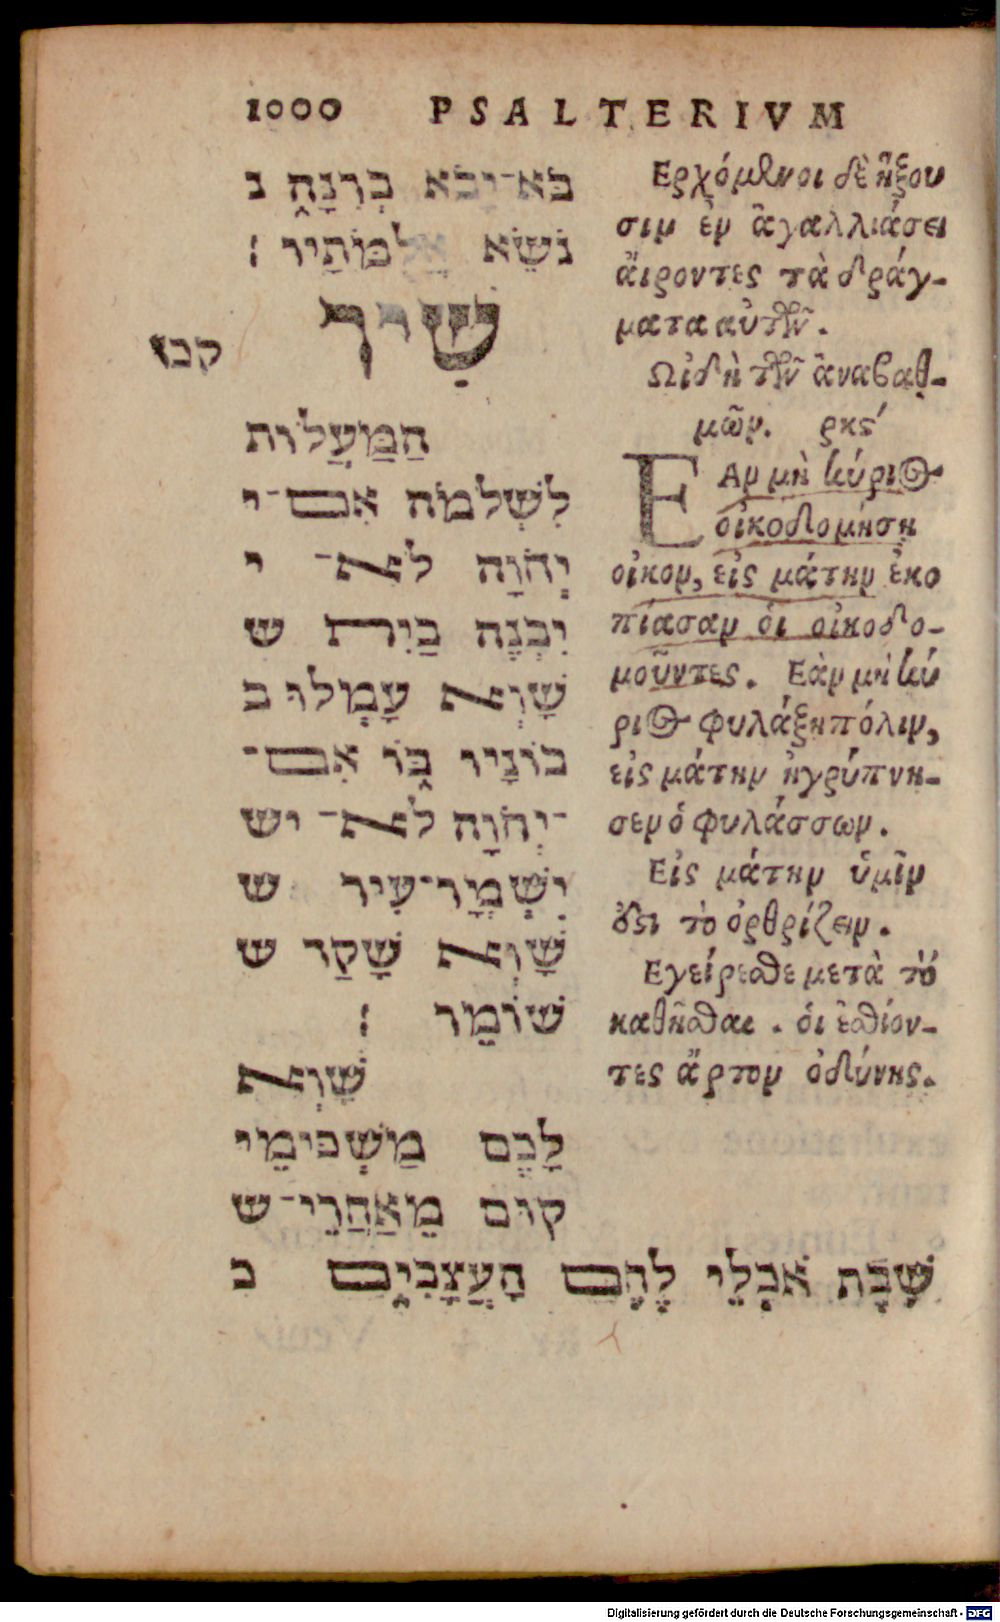 1000 PSALTERIVM
בֹּא־יָבֹא בְרִנָּה נ
נֹשֵׂא אֲלֻמֹּתָיו׃
קכז
שִׁיר
הַמַּעֲלוֹת
לִשְׁלֹמֹה אִם־י
יְהֹוָה לֹא־ י
יִבְנֶה בַיִת ש
שָׁוְא עָמְלוּ ב
בוֹנָיו בּוֹ אִם־
־יְהֹוָה לֹא־ יש
יִשְׁמָר־עִיר ש
שָׁוְא שָׁקַד ש
שׁוֹמֵר׃
שָׁוְא
לָכֶם מַשְׁכִּימֵי
קוּם מְאַחֲרֵי־ש
שֶׁבֶת אֹכְלֵי לֶחֶם הָעֲצָבִים כ
Ερχόμενοι δὲ ἥξου
σιν ἐν ἀγαλλιάσει
ἄιροντες τὰ δράγ-
ματα αὐτῶν.
Ωιδὴ τῶν ἀναβαθ-
μῶν. ρκς΄
ΕΑν μὴ κύριος
οἰκοδομήσῃ
οἶκον, εἰς μάτην ἐκο
πίασαν ὁι οἰκοδο-
μοῦντες. Εὰν μὴ κύ
ριος φυλάξῃ πόλιν,
εἰς μάτην ἠγρύπνη-
σεν ὁ φυλάσσων.
Εἰς μάτην ὑμῖν
ἐϛι τὸ ὀρθρίζειν.
Εγείρεσθε μετὰ τὸ
καθῆσθαι. ὁι ἐσθίον-
τες ἄρτον ὀδύνης.
Digitalisierung gefördert durch die Deutsche Forschungsgemeinschaft - DFG